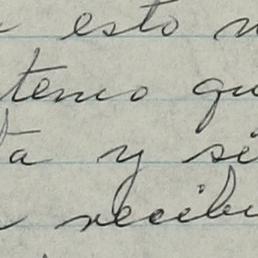 esto
temo qu
ta y si
recibi